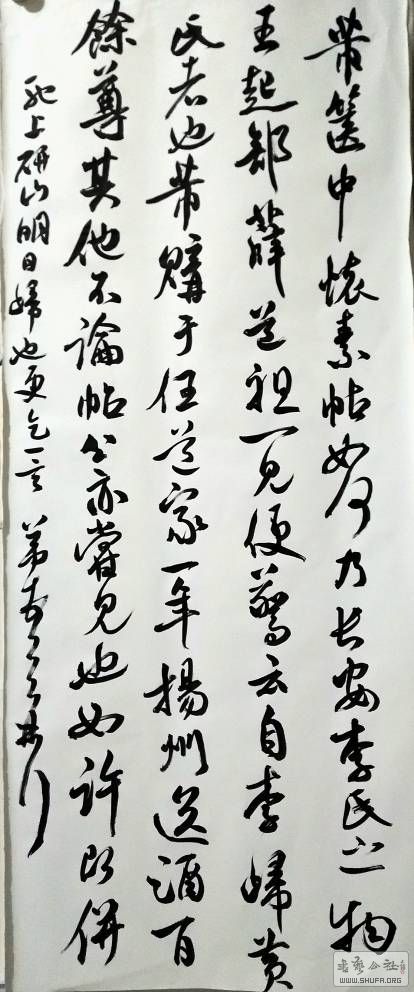 芾篋中懷素帖如何乃長安李氏之物
王起部薛道祖一見便驚云自李歸黃
氏者也芾購于任道家一年揚州送酒百
餘尊其他不論帖公亦嘗見也如許即併
馳上研山明日歸也更乞一言 芾
書藝公社
WWW.SHUFA.ORG